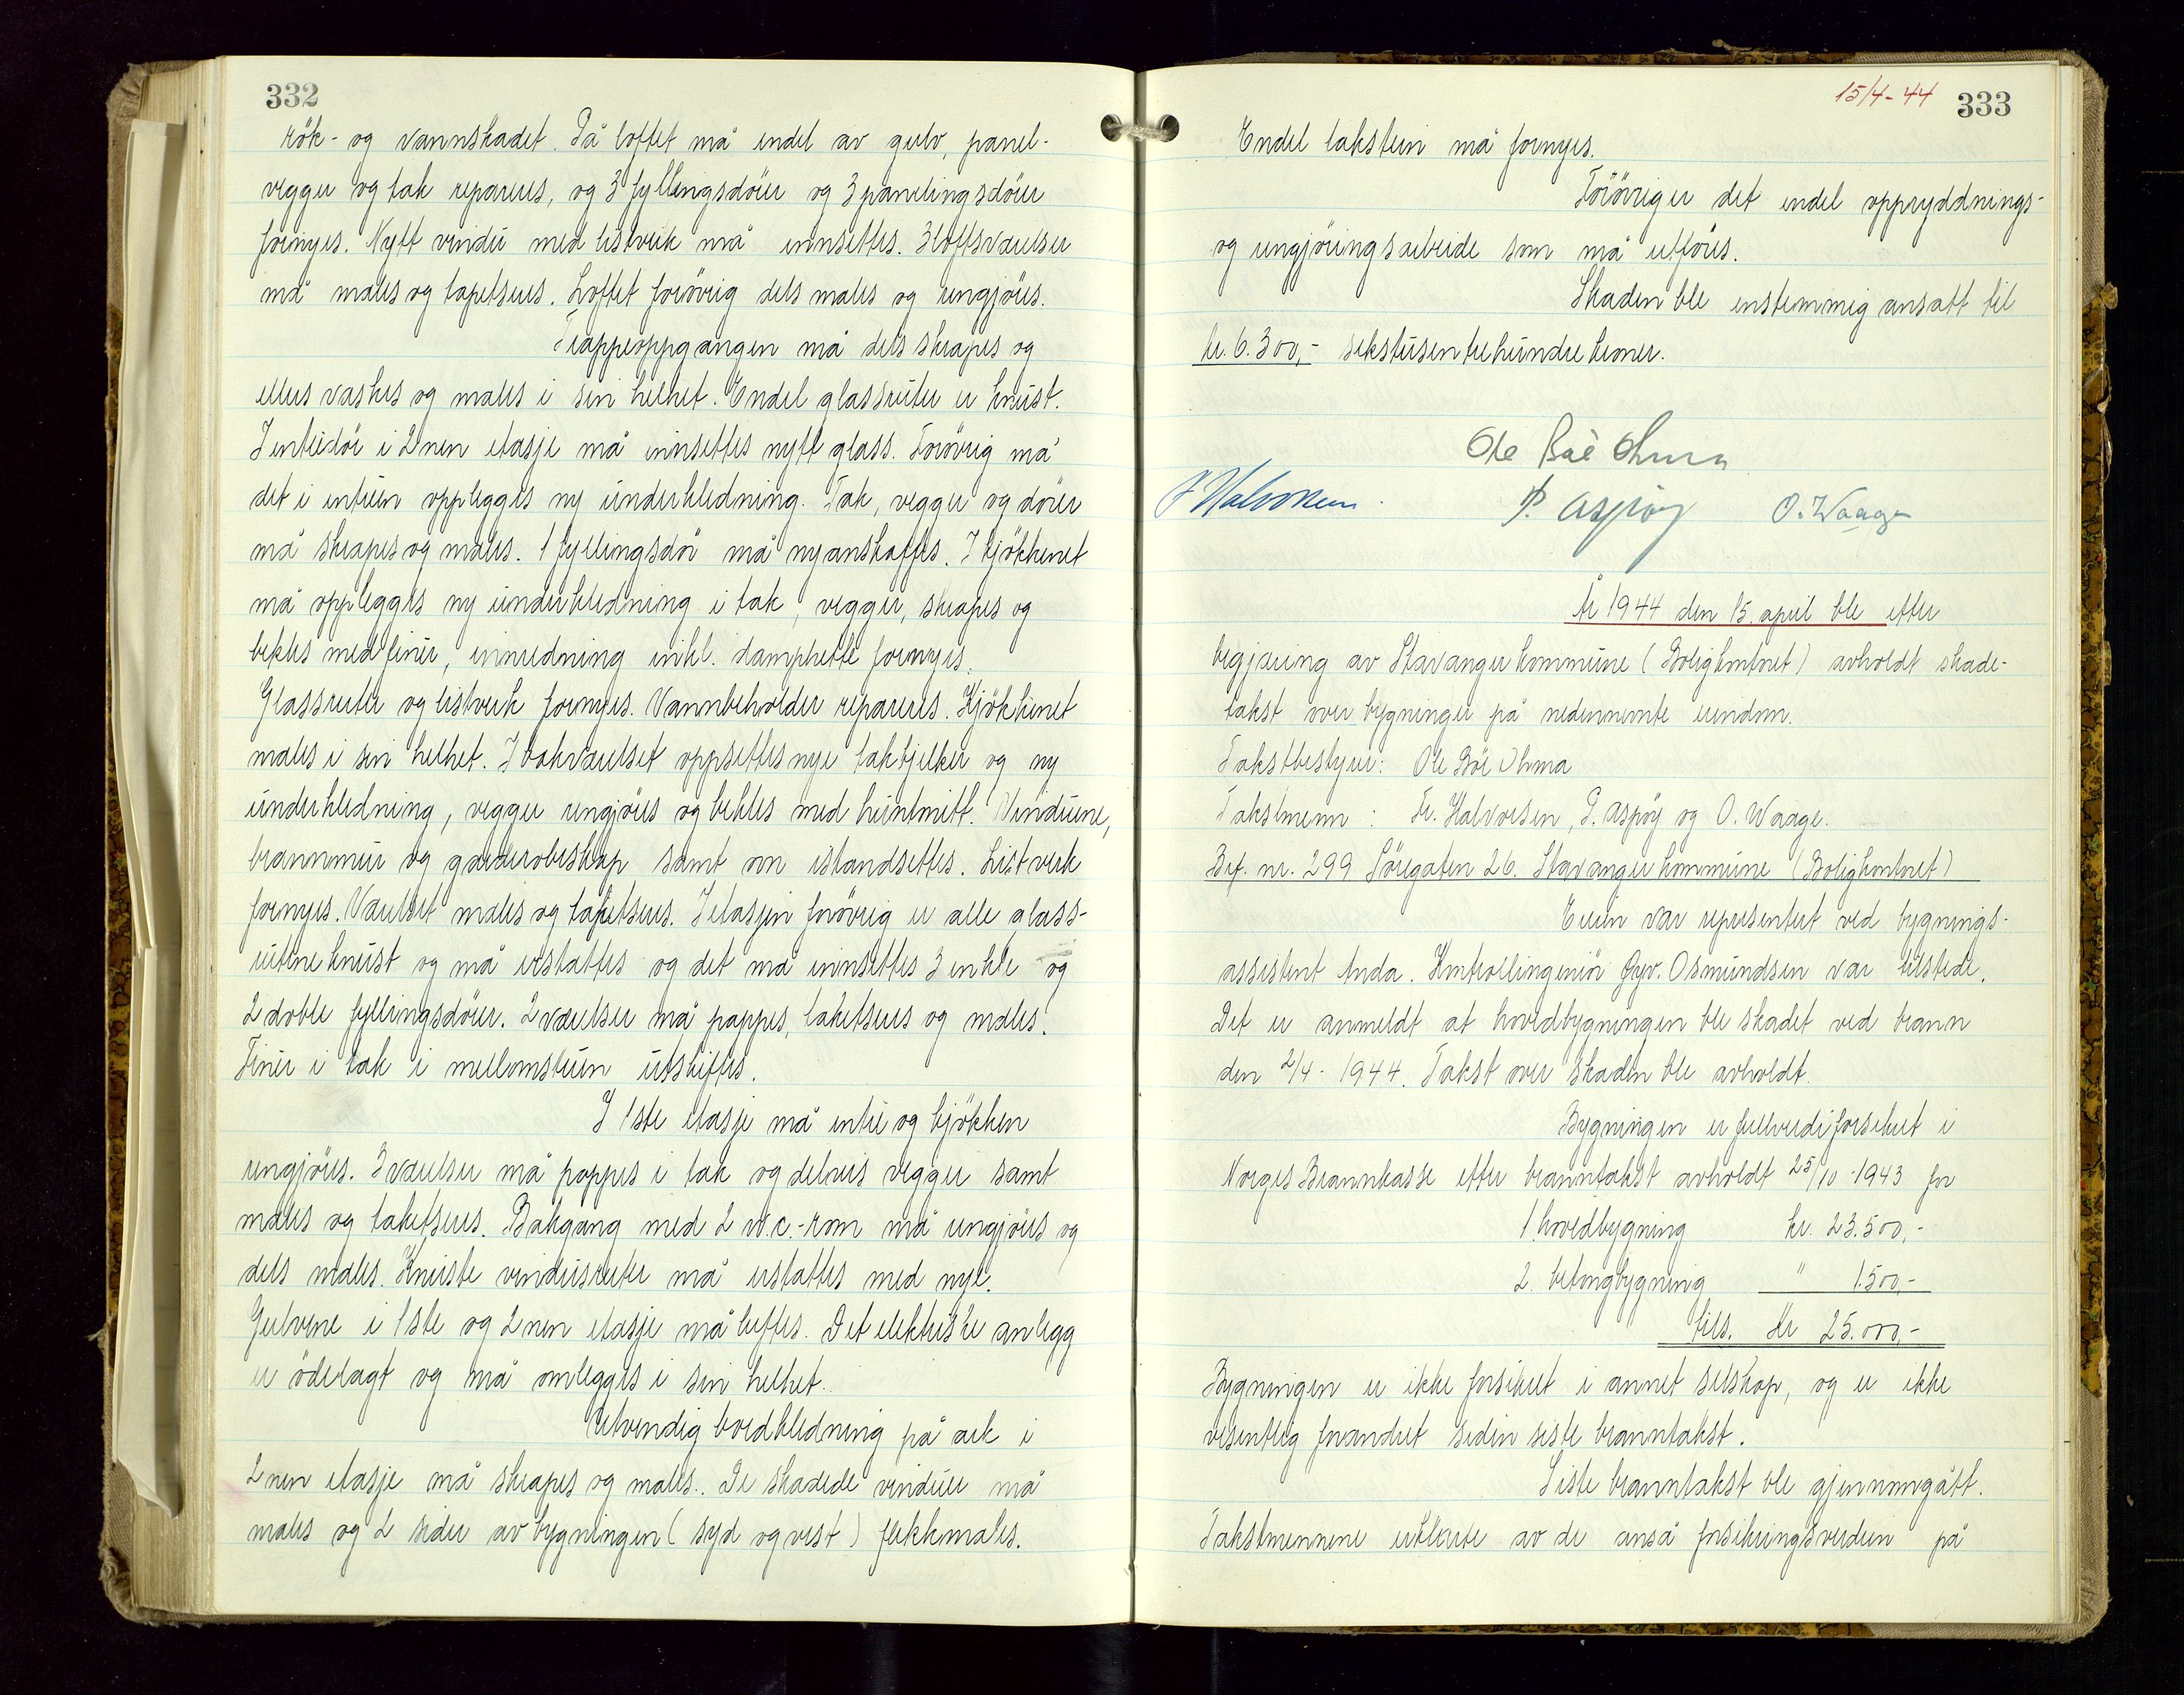 332
rök- og vannskadet. På loftet må endel av gulv, panel-
vegger og tak repareres, og 3 fyllingsdörer og 3 panelingsdörer
fornyes. Nytt vindu med listverk må innsettes. 3 loftsværelser
må males og tapetseres. Loftet forövrig dels males og rengjöres.
Trappeoppgangen må dels skrapes og
ellers vaskes og males i sin helhet. Endel glassruter er knust.
I entredör i 2nen etasje må innsettes nytt glass. Forövrig må
det i entreen opplegges ny underkledning. Tak, vegger og dörer
må skrapes og males. 1 fyllingsdör må nyanskaffes. I kjökkenet
må opplegges ny underkledning i tak, vegger, skrapes og
bekles med finer, innredning inkl. damphette fornyes.
Glassruter og listverk fornyes. Vannbeholder repareres. Kjökkenet
males i sin helhet. I bakværelset oppsettes nye takbjelker og ny
underkledning, vegger rengjöres og bekles med huntonitt. Vinduene,
brannmur og garderobeskap samt om istandsettes. Listverk
fornyes. Værelset males og tapetseres. I etasjen forövrig er alle glass-
rutene knust og må erstattes og det må innsettes 3 enkle og
2 doble fyllingsdörer. 2 værelser må pappes, taketseres og males.
Finer i tak i mellomstuen utskiftes.
I 1ste etasje må entre og kjökken
rengjöres. 3 værelser må pappes i tak og delvis vegger samt
males og taketseres. Bakgang med 2 w.c.-rom må rengjöres og
dels males. Knuste vindusruter må erstattes med nye.
Gulvene i 1ste og 2nen etasje må luftes. Det elektriske anlegg
er ödelagt og må omlegges i sin helhet.
Utvendig bordkledning på ark i
2nen etasje må skrapes og males. De skadede vinduer må
males og 2 sider av bygningen (syd og vest) flekkmales.
15/4-44 333
Endel takstein må fornyes.
Forövrig er det endel oppryddnings-
og rengjöringsarbeide som må utföres.
Skaden ble enstemmig ansatt til
kr. 6.300,- sekstusentrehundre kroner.
Ole Böe Ohma
Fr Halvorsen. P. Aspöy O. Waage
År 1944 den 15. april ble etter
begjæring av Stavanger kommune (Boligkontoret) avholdt skade-
takst over bygninger på nedennevnte eiendom.
Takstbestyrer: Ole Böe Ohma
Takstmenn : Fr. Halvorsen, P. Aspöy og O. Waage.
Brf. nr. 299 Söregaten 26. Stavanger kommune (Boligkontoret)
Eieren var representert ved bygnings-
assistent Anda. Kontrollingeniör Osmundsen var tilstede.
Det er anmeldt at hovedbygningen ble skadet ved brann
den 2/4 - 1944. Takst over skaden ble avholdt.
Bygningen er fullverdiforsikret i
Norges Brannkasse etter branntakst avholdt 25/10-1943 for
1. hovedbygning kr. 23.500,-
2. betongbygning " 1.500,-
tils. kr 25.000,-
Bygningen er ikke forsikret i annet selskap, og er ikke
vesentlig forandret siden siste branntakst.
Siste branntakst ble gjennomgått.
Takstmennene erklærte av de anså forsikringsverdien på